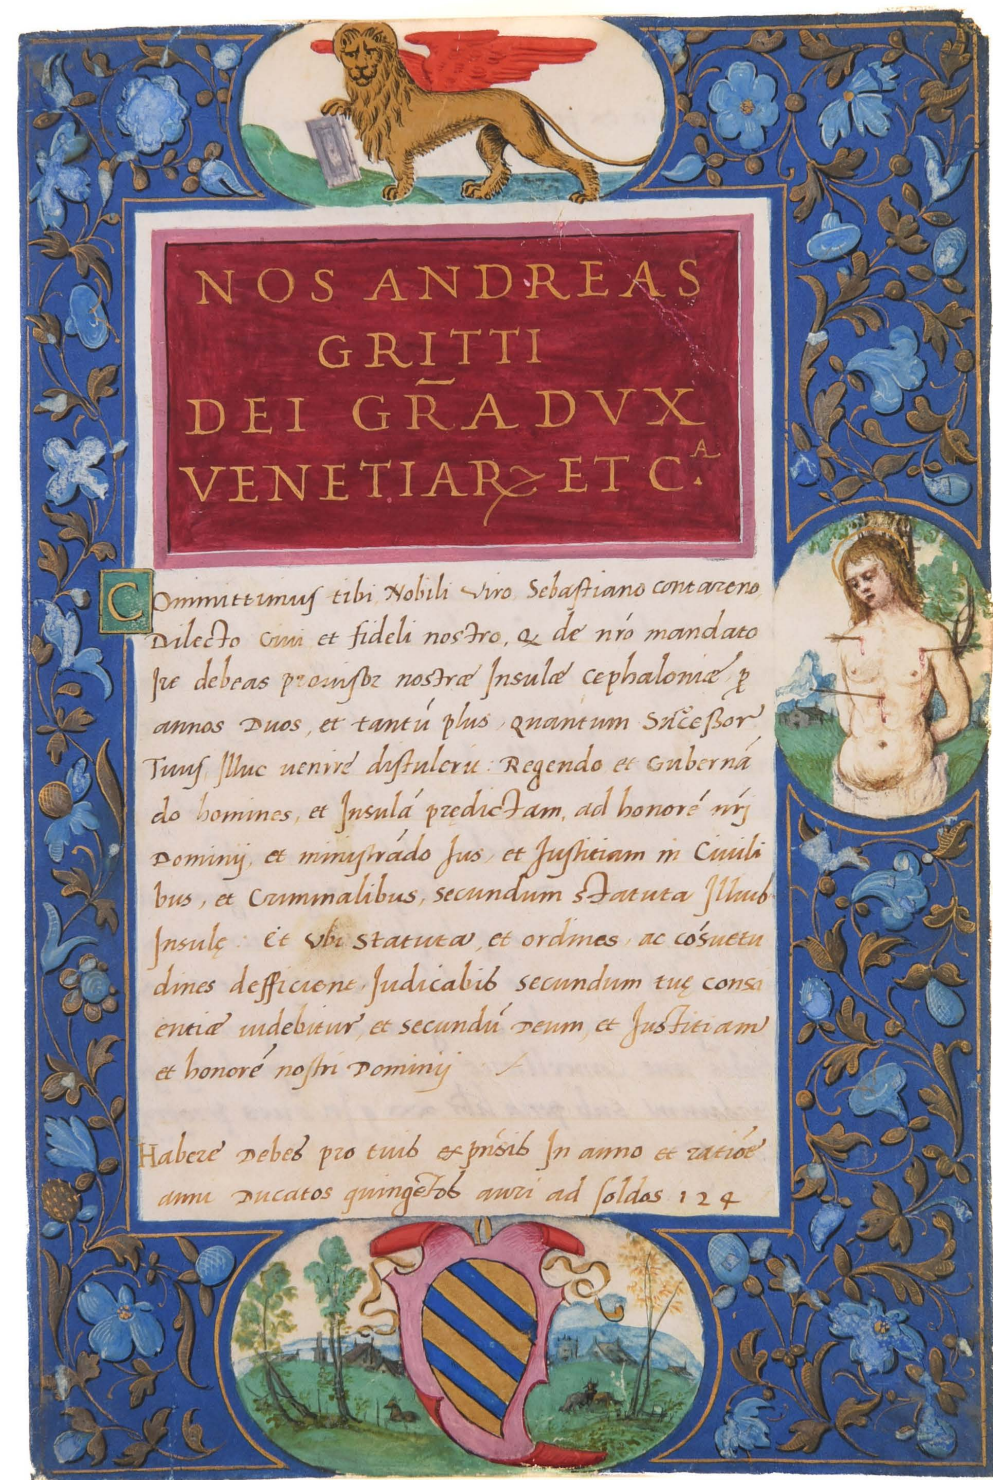 NOS ANDREAS
GRITTI
DEI GR̄A DVX
VENETIARꝜ ET C.ᴬ
Committimus tibi Nobili Viro Sebastiano contareno
Dilecto Ciui et fideli nostro, Q de nr̄o mandato
Ire debeas prouisor nostræ Insulæ Cephaloniæ, ꝑ
annos Duos, et tantú plus, Quantum Successor
Tuus Illuc venire distulerit: Regendo et Guberná
do homines, et Insulá prędictam, ad honoré nr̄j
Dominij, et ministrádo Jus, et Justitiam in Ciuili
bus, et Criminalibus, secundum statuta Illius
Insulę. Et Vbi statuta, et ordines, ac cósuetu
dines defficient, Judicabis secundum tuę consci
entiæ uidebitur, et secundú Deum, et Justitiam
et honoré nostri Dominij
Habere Debes pro tuis expensis In anno et ratióe
anni Ducatos quingētos auri ad soldos 124